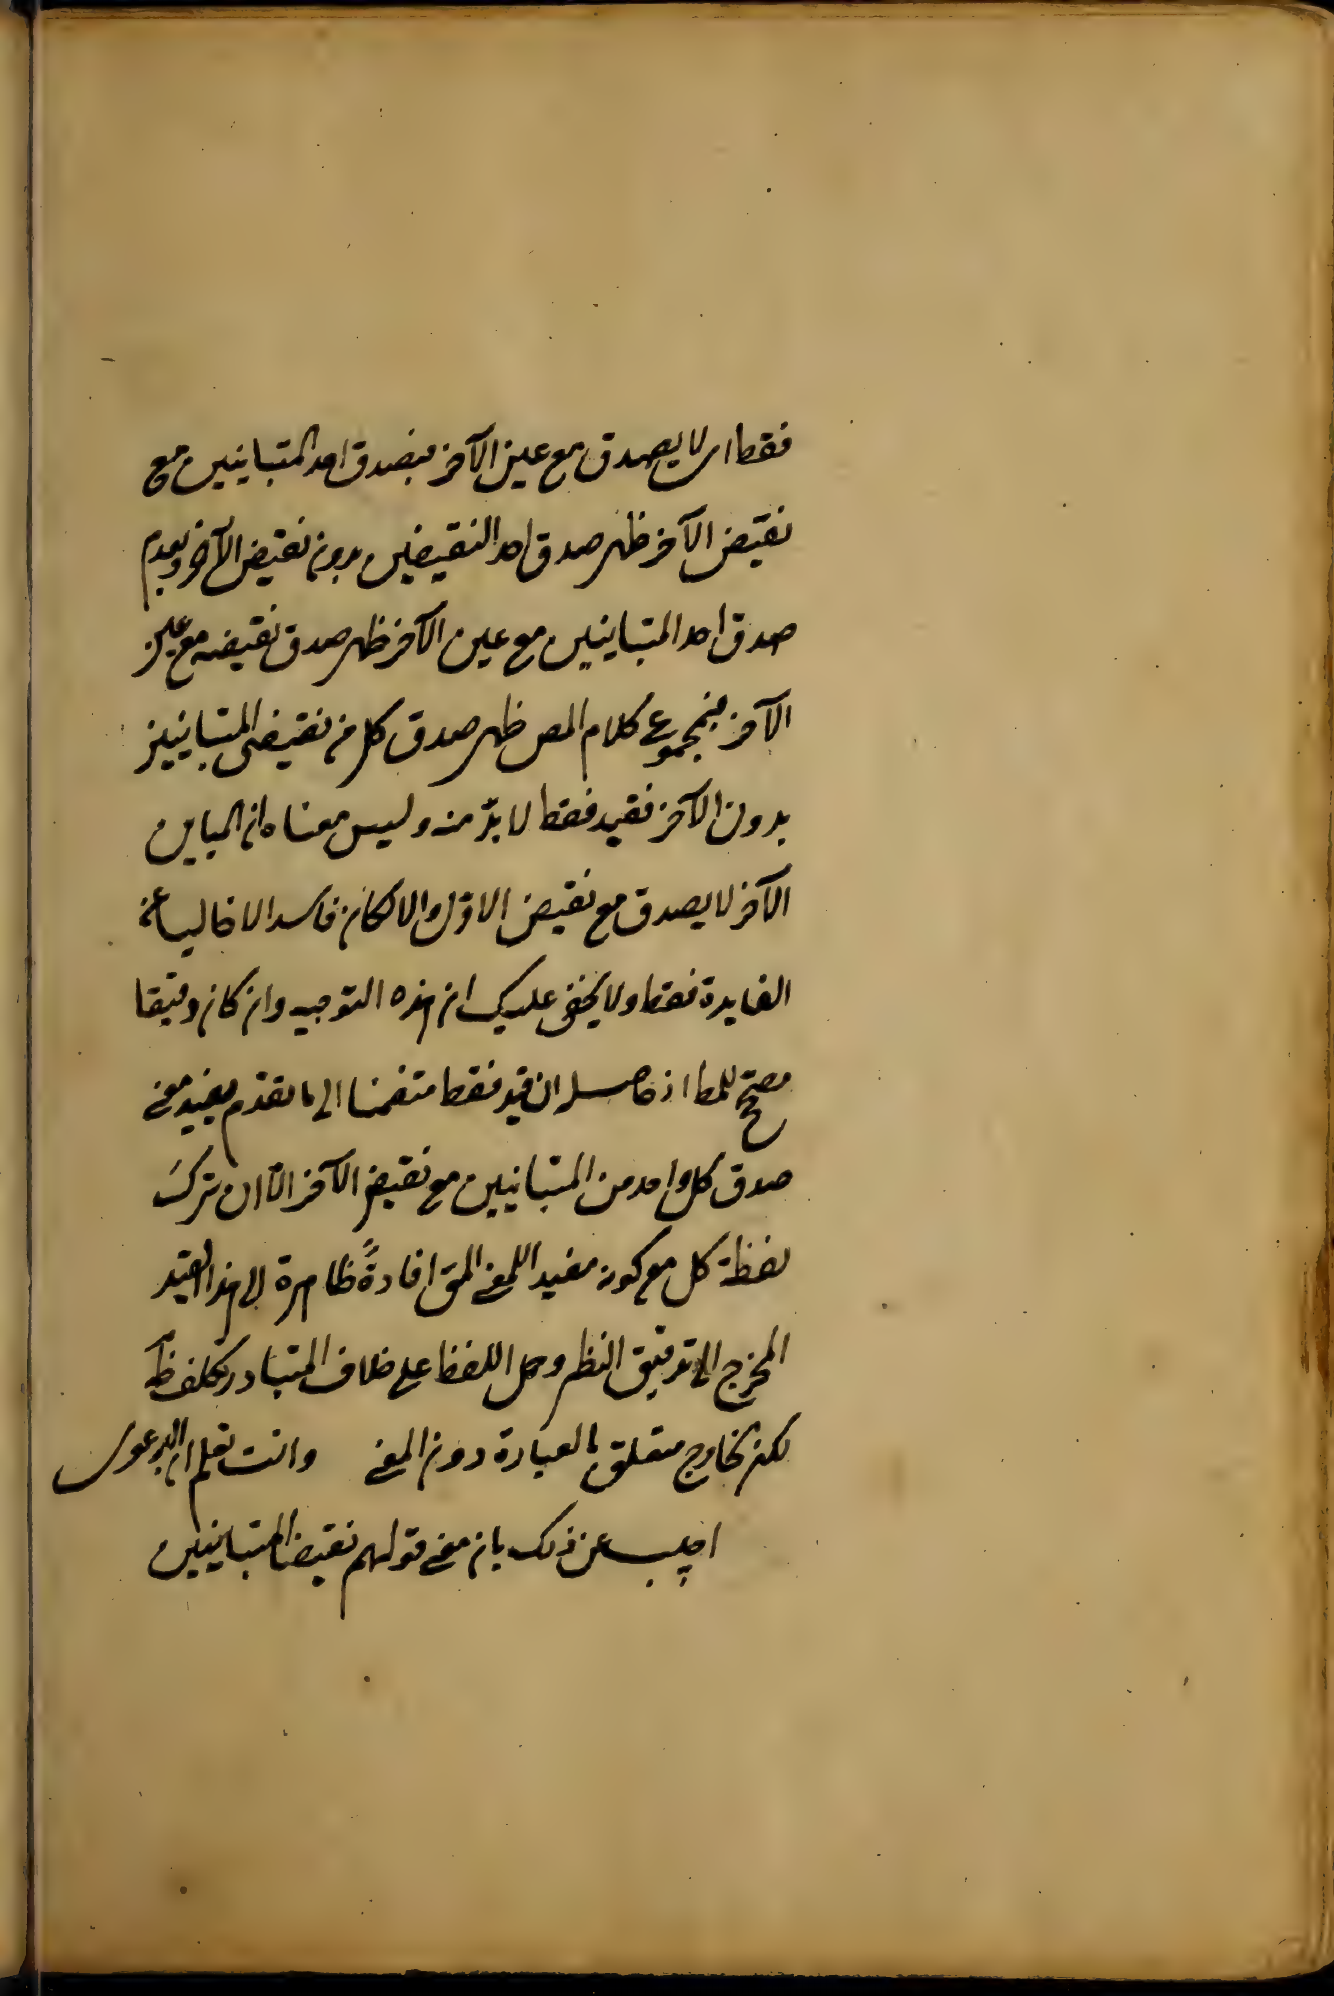 فقط اى لا يصدق مع عين الآخر فبصدق احد المتباينين مع
نقيض الآخر ظهر صدق احد النقيضين بدون نقيض الآخر وبعدم
صدق احد المتباينين مع عين الآخر ظهر صدق نقيضه مع عين
الآخر فبمجموع كلام المص ظهر صدق كل من نقيضى المتباينين
بدون الآخر فقيد فقط لا بدّ منه وليس معناه ان المباين
الآخر لا يصدق مع نقيض الاوّل والا لكان فاسدا لا خاليا عن
الفايدة فقط ولا يخفى عليك ان هذه التوجيه وان كان دقيقا
مصحّح للمط اذ حاصله ان قيد فقط منضما الى ما تقدّم يفيد معنى
صدق كل واحد من المتباينين مع نقيض الآخر الّا ان ترك
لفظة كل مع كونه مفيدا للمعنى المق افادةً ظاهرة الى هذا القيد
المخرج الى تدقيق النظر وحمل اللفظ على خلاف المتبادر تكلف ظ
لكنه بخارج متعلق بالعبارة دون المعنى وانت تعلم ان الدعوى
اجيب عن ذلك بان معنى قولهم نقيضا المتباينين